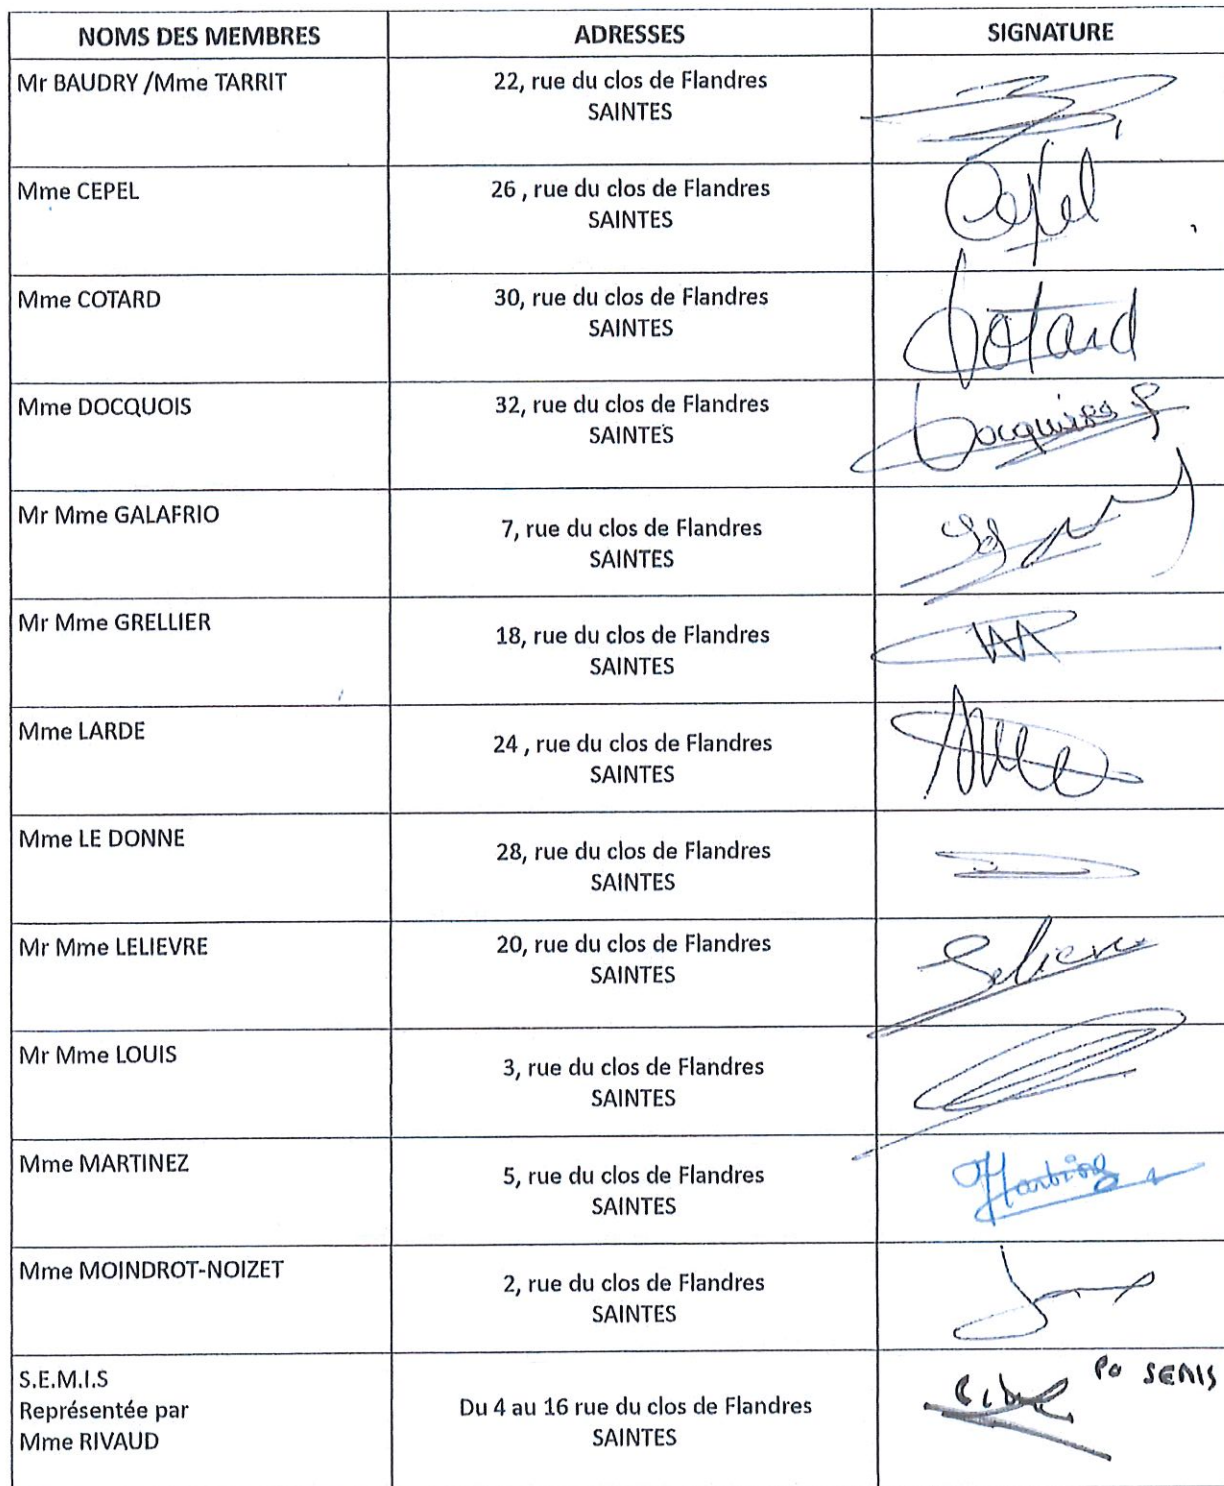 NOMS DES MEMBRES ADRESSES SIGNATURE
Mr BAUDRY /Mme TARRIT 22, rue du clos de Flandres
SAINTES
Mme CEPEL 26 , rue du clos de Flandres Cepel
SAINTES
Mme COTARD 30, rue du clos de Flandres Cotard
SAINTES
Mme DOCQUOIS 32, rue du clos de Flandres
SAINTES
Mr Mme GALAFRIO 7, rue du clos de Flandres
SAINTES
Mr Mme GRELLIER 18, rue du clos de Flandres
SAINTES
Mme LARDE 24 , rue du clos de Flandres
SAINTES
Mme LE DONNE 28, rue du clos de Flandres
SAINTES
Mr Mme LELIEVRE 20, rue du clos de Flandres
SAINTES
Mr Mme LOUIS 3, rue du clos de Flandres
SAINTES
Mme MARTINEZ 5, rue du clos de Flandres
SAINTES
Mme MOINDROT-NOIZET 2, rue du clos de Flandres
SAINTES
S.E.M.I.S Po SEMIS
Représentée par Du 4 au 16 rue du clos de Flandres
Mme RIVAUD SAINTES